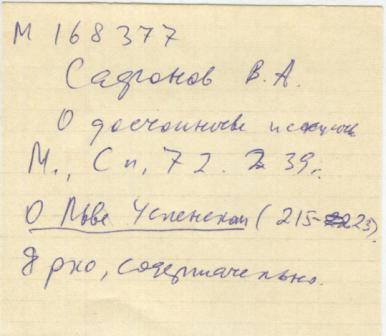 М 168377
Сафонов В.А.
О достоинстве искусства
М., Сп, 72. 239.
О Льве Успенском (215-223).
Ярко, содержательно.